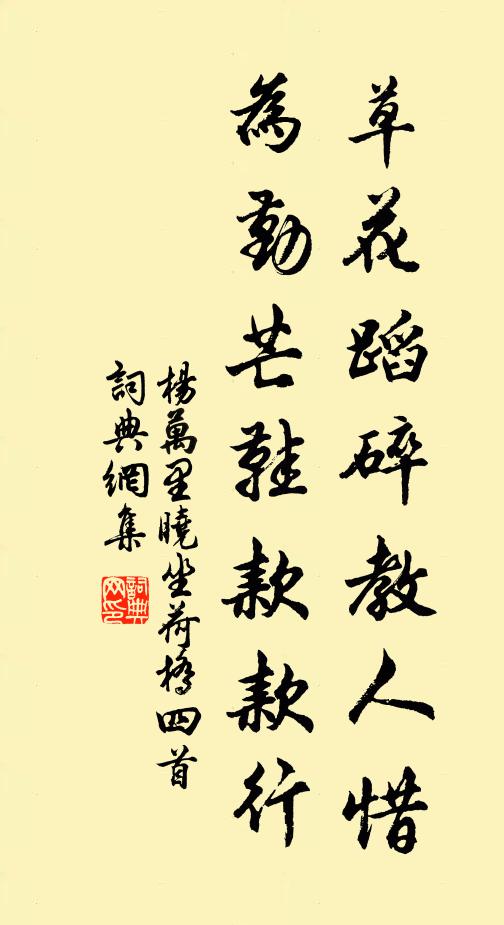 草花蹈碎教人惜
為勤芒鞋款款行
楊萬里曉坐荷橋四首
詞典網集
詞典網印